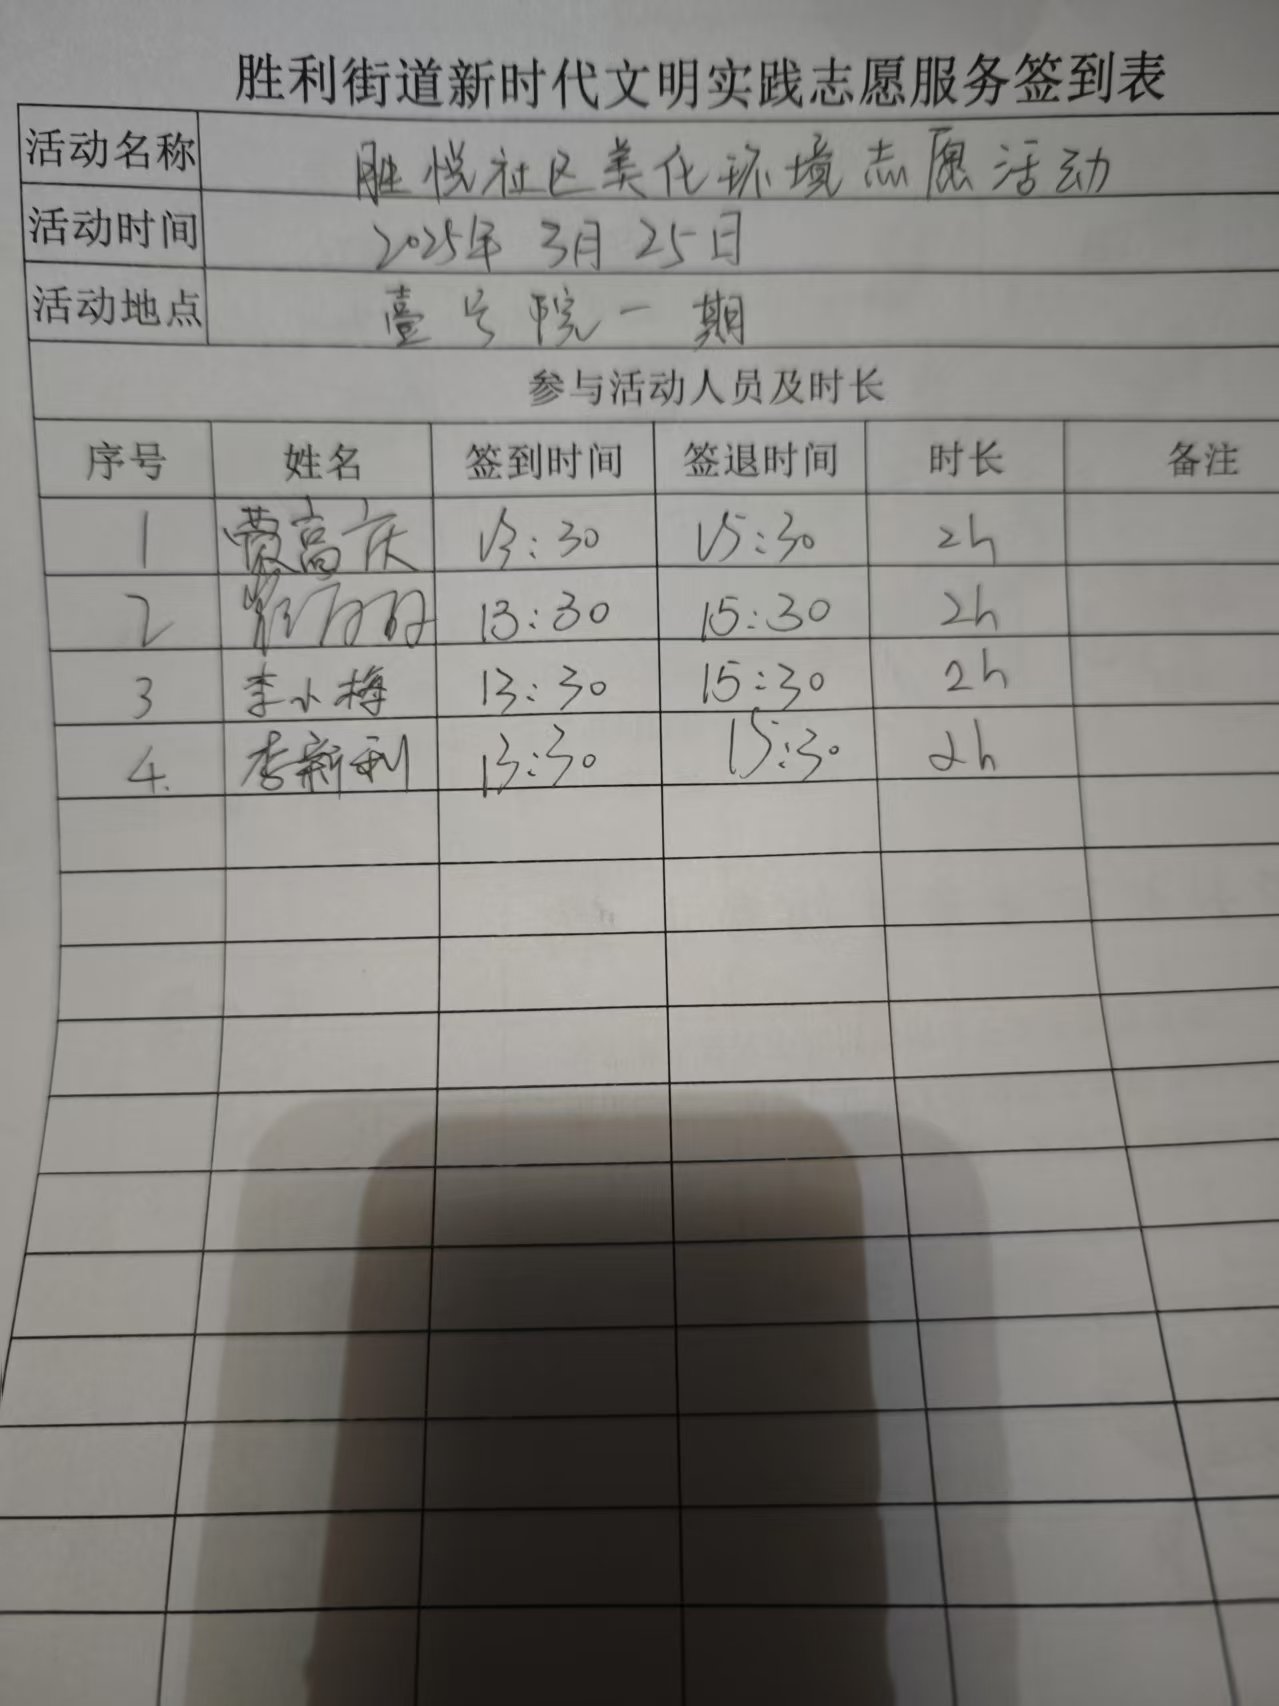 胜利街道新时代文明实践志愿服务签到表
活动名称 胜悦社区美化环境志愿活动
活动时间 2025年3月25日
活动地点 壹号院一期
参与活动人员及时长
序号 姓名 签到时间 签退时间 时长 备注
1 高庆 13:30 15:30 2h
2 13:30 15:30 2h
3 李小梅 13:30 15:30 2h
4. 李新利 13:30 15:30 2h